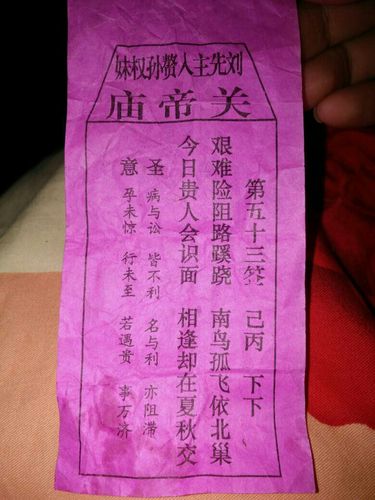 刘先主人赘孙权妹
关帝庙
第五十三签 己丙 下下
艰难险阻路蹊跷 南鸟孤飞依北巢
今日贵人会识面 相逢却在夏秋交
圣 病与讼 皆不利 名与利 亦阻滞
意 孕未惊 行未至 若遇贵 事万济